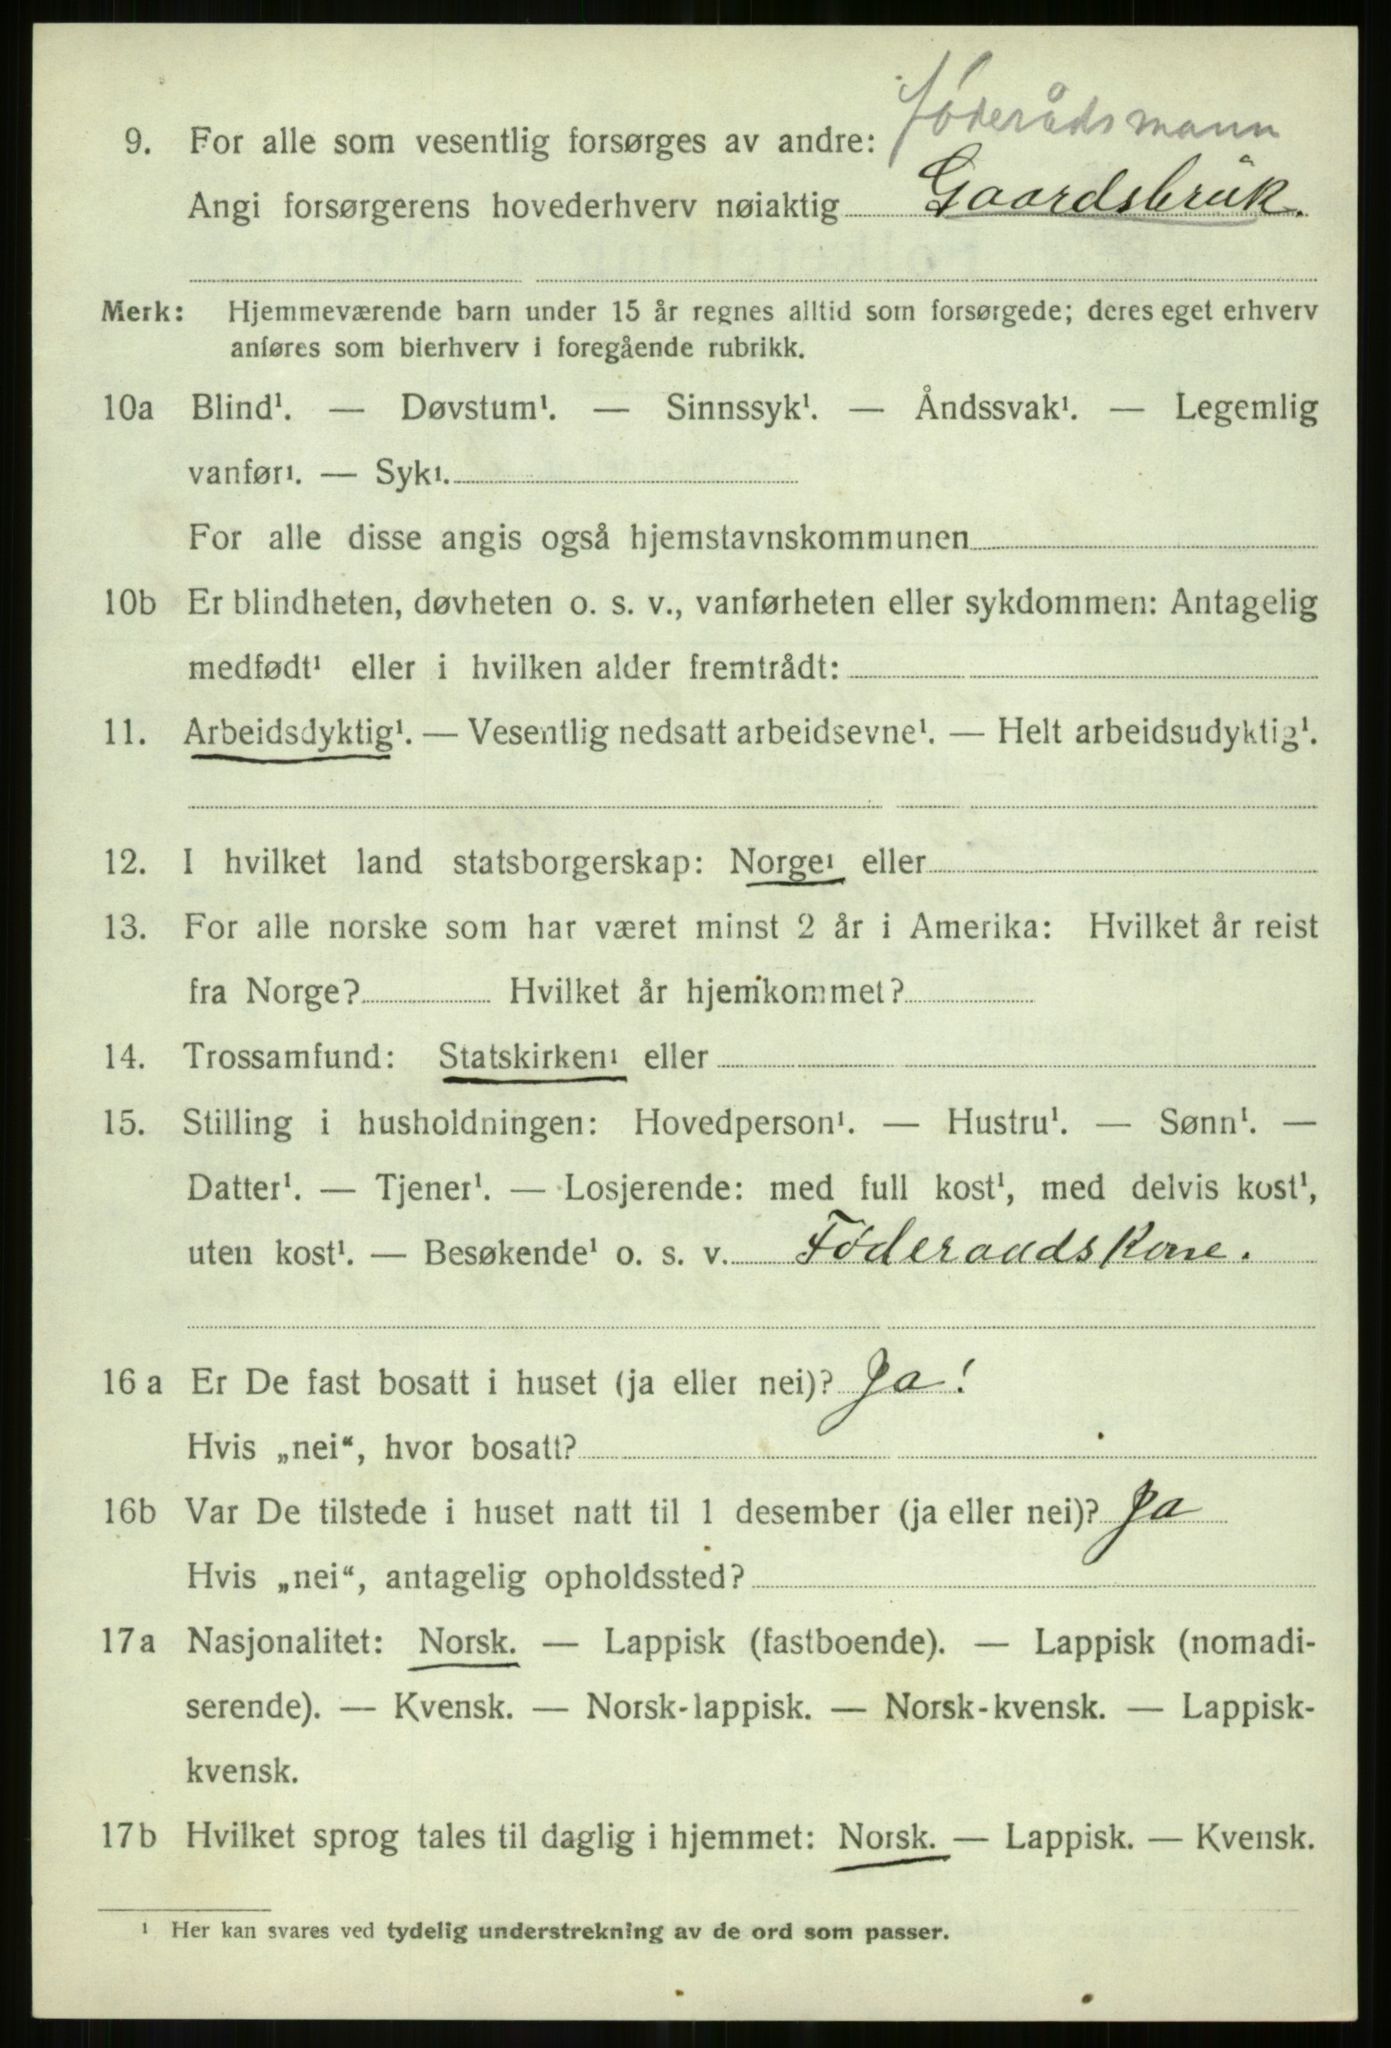 føderådsmann
9. For alle som vesentlig forsørges av andre:
Angi forsørgerens hovederhverv nøiaktig Gaardsbrük.
Merk: Hjemmeværende barn under 15 år regnes alltid som forsørgede; deres eget erhverv
anføres som bierhverv i foregående rubrikk.
10a Blind¹. — Døvstum¹. — Sinnssyk¹. — Åndssvak¹. — Legemlig
vanfør¹. — Syk¹.
For alle disse angis også hjemstavnskommunen
10b Er blindheten, døvheten o. s. v., vanførheten eller sykdommen: Antagelig
medfødt¹ eller i hvilken alder fremtrådt:
11. Arbeidsdyktig¹. — Vesentlig nedsatt arbeidsevne¹. — Helt arbeidsudyktig¹.
12. I hvilket land statsborgerskap: Norge¹ eller
13. For alle norske som har været minst 2 år i Amerika: Hvilket år reist
fra Norge? Hvilket år hjemkommet?
14. Trossamfund: Statskirken¹ eller
15. Stilling i husholdningen: Hovedperson¹. — Hustru¹. — Sønn¹. —
Datter¹. — Tjener¹. — Losjerende: med full kost¹, med delvis kost¹,
uten kost¹. — Besøkende¹ o. s. v. Føderaadskone.
16 a Er De fast bosatt i huset (ja eller nei)? Ja!
Hvis „nei“, hvor bosatt?
16b Var De tilstede i huset natt til 1 desember (ja eller nei)? Ja
Hvis „nei“, antagelig opholdssted?
17a Nasjonalitet: Norsk. — Lappisk (fastboende). — Lappisk (nomadi-
serende). — Kvensk. — Norsk-lappisk. — Norsk-kvensk. — Lappisk-
kvensk.
17b Hvilket sprog tales til daglig i hjemmet: Norsk. — Lappisk. — Kvensk.
¹ Her kan svares ved tydelig understrekning av de ord som passer.